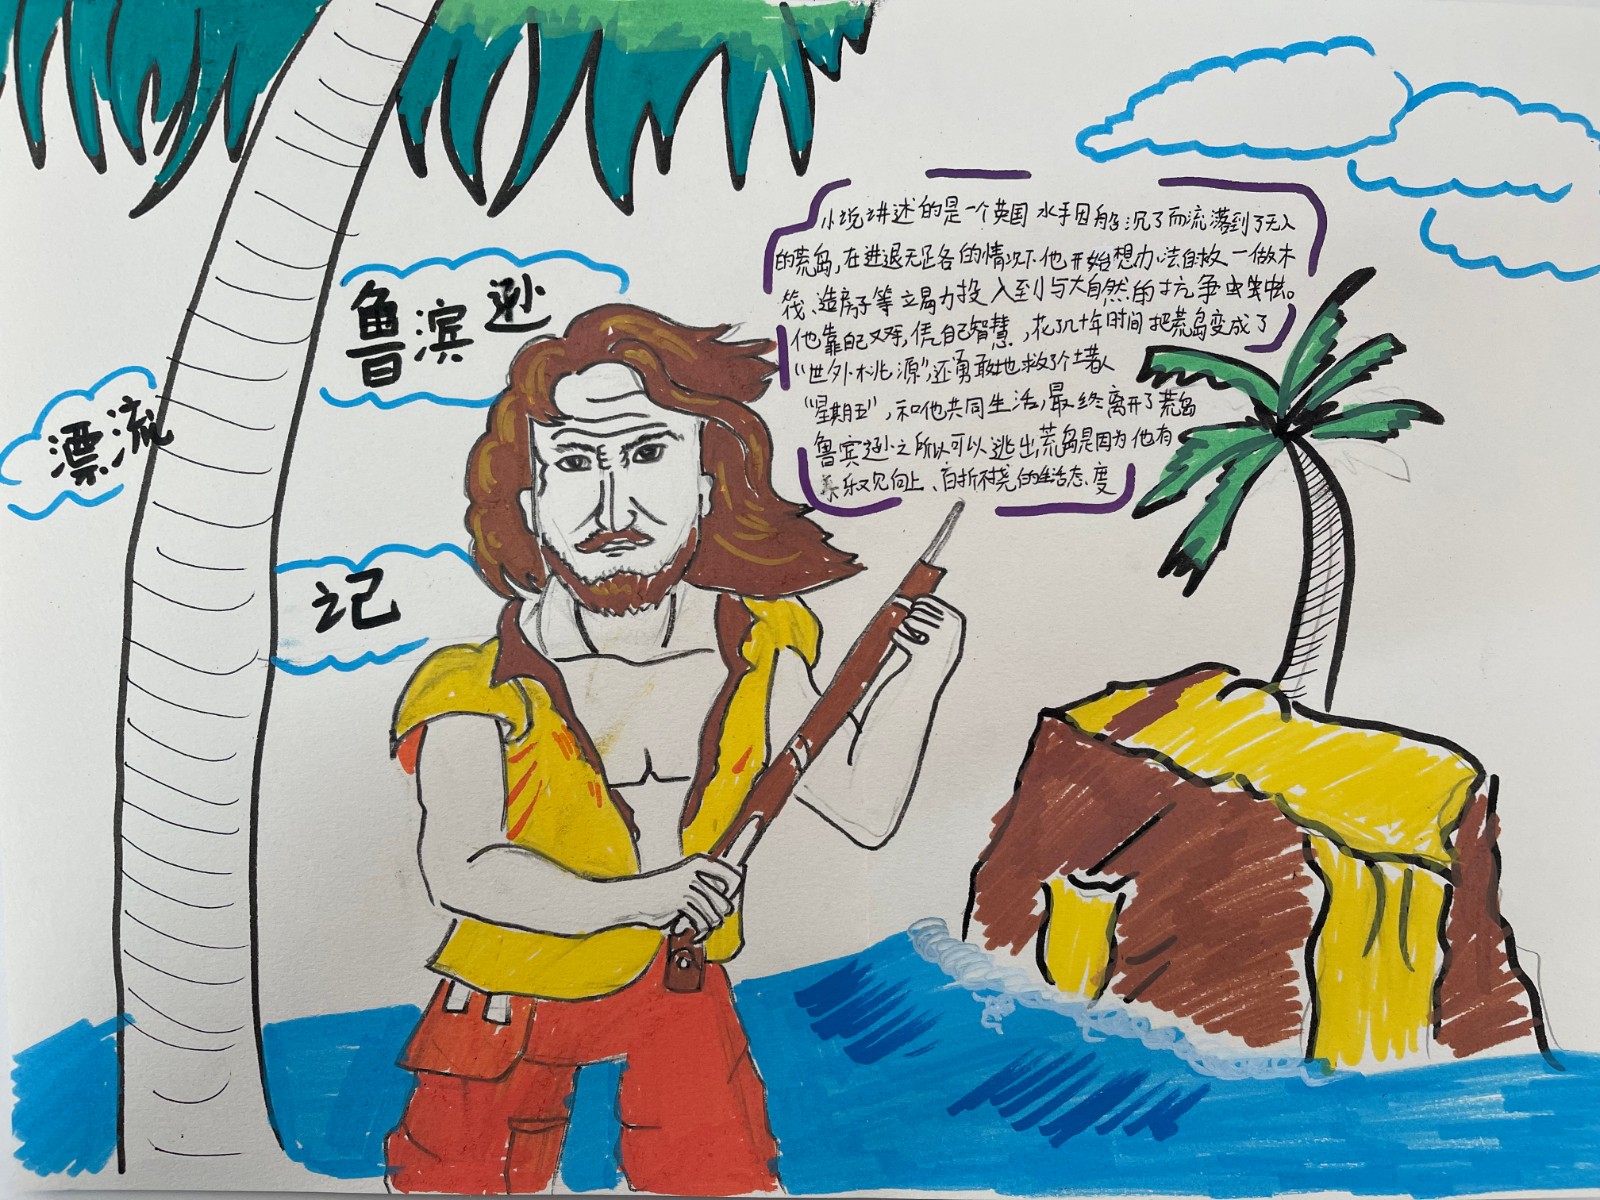 鲁滨逊
漂流
记
小说讲述的是一个英国水手因船沉了而流落到了无人
的荒岛,在进退无足各的情况下他开始想办法自救一做木
筏、造房子等立易力投入到与大自然的抗争虫虫中。
他靠自己双手,凭自己智慧,花了几十年时间把荒岛变成了
“世外桃源”,还勇敢地救了个土著人
“星期五”,和他共同生活,最终离开了荒岛
鲁宾逊之所以可以逃出荒岛是因为他有
乐观向上、百折不挠的生活态度